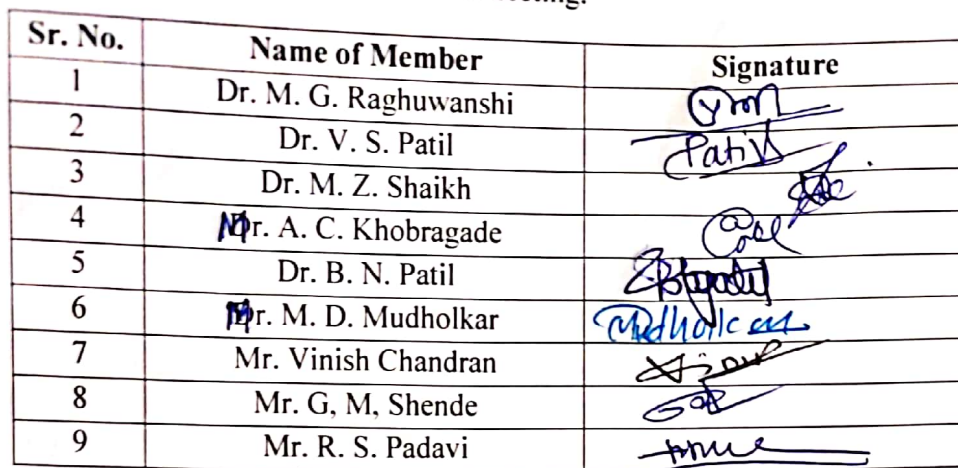 Sr. No. Name of Member Signature
1 Dr. M. G. Raghuwanshi
2 Dr. V. S. Patil Patil
3 Dr. M. Z. Shaikh
4 Mr. A. C. Khobragade
5 Dr. B. N. Patil
6 Mr. M. D. Mudholkar Mudholkar
7 Mr. Vinish Chandran
8 Mr. G, M, Shende
9 Mr. R. S. Padavi